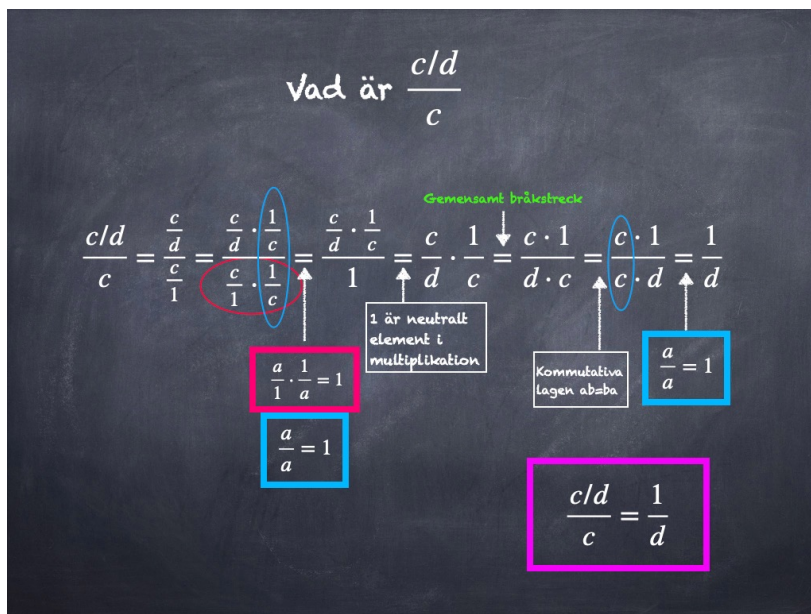 Vad är \frac{c/d}{c}
Gemensamt bråkstreck
\frac{c/d}{c} = \frac{\frac{c}{d}}{\frac{c}{1}} = \frac{\frac{c}{d} \cdot \frac{1}{c}}{\frac{c}{1} \cdot \frac{1}{c}} = \frac{\frac{c}{d} \cdot \frac{1}{c}}{1} = \frac{c}{d} \cdot \frac{1}{c} = \frac{c \cdot 1}{d \cdot c} = \frac{c \cdot 1}{c \cdot d} = \frac{1}{d}
1 är neutralt
element i
multiplikation
\frac{a}{1} \cdot \frac{1}{a} = 1
\frac{a}{a} = 1
Kommutativa
lagen ab=ba
\frac{a}{a} = 1
\frac{c/d}{c} = \frac{1}{d}